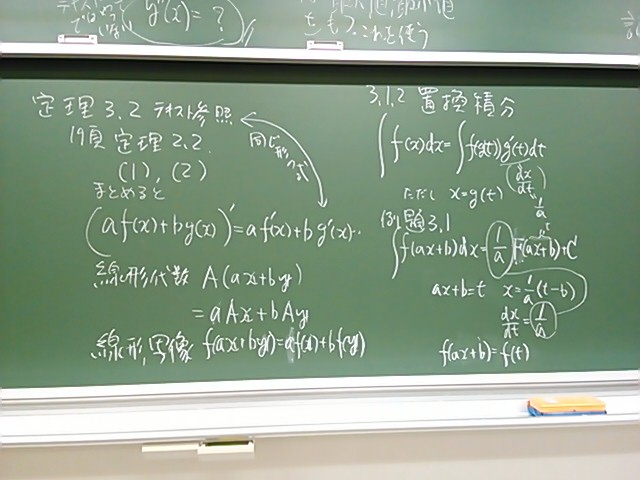 g'(x) = ?
これを使う
定理3.2 テキスト参照
19頁 定理2.2
(1), (2)
まとめると
同じ形
(af(x)+bg(x))' = af'(x)+bg'(x).
線形代数 A(ax+by)
= aAx+bAy
線形写像 f(ax+by)=af(x)+bf(y)
3.1.2 置換積分
∫f(x)dx=∫f(g(t))g'(t)dt
dx/dt
ただし x=g(t)
1/a
例題3.1
∫f(ax+b)dx=1/a F(ax+b)+C
ax+b=t x=1/a(t-b)
dx/dt=1/a
f(ax+b)=f(t)